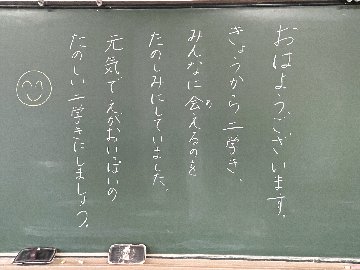 おはようございます。
きょうから二学き、
みんなに会えるのを
たのしみにしていました。
元気でえがおいっぱいの
たのしい二学きにしましょう。